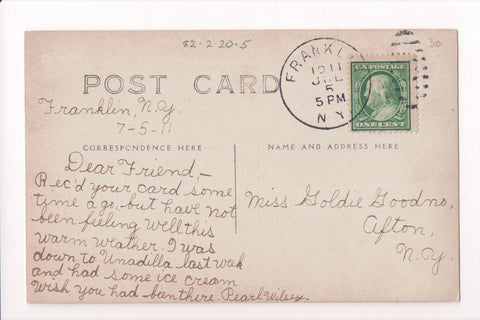 82-2-20-5
30
POST CARD
FRANKLIN
1911
JUL
5
5 PM
N Y
U.S. POSTAGE
ONE CENT
Franklin, N.Y.
7-5-11
CORRESPONDENCE HERE
NAME AND ADDRESS HERE
Dear Friend,—
Rec'd your card some
time ago, but have not
been feeling well this
warm weather. I was
down to Unadilla last week
and had some ice cream
Wish you had been there. Pearl Wilsex.
Miss Goldie Goodno,
Afton,
N.Y.